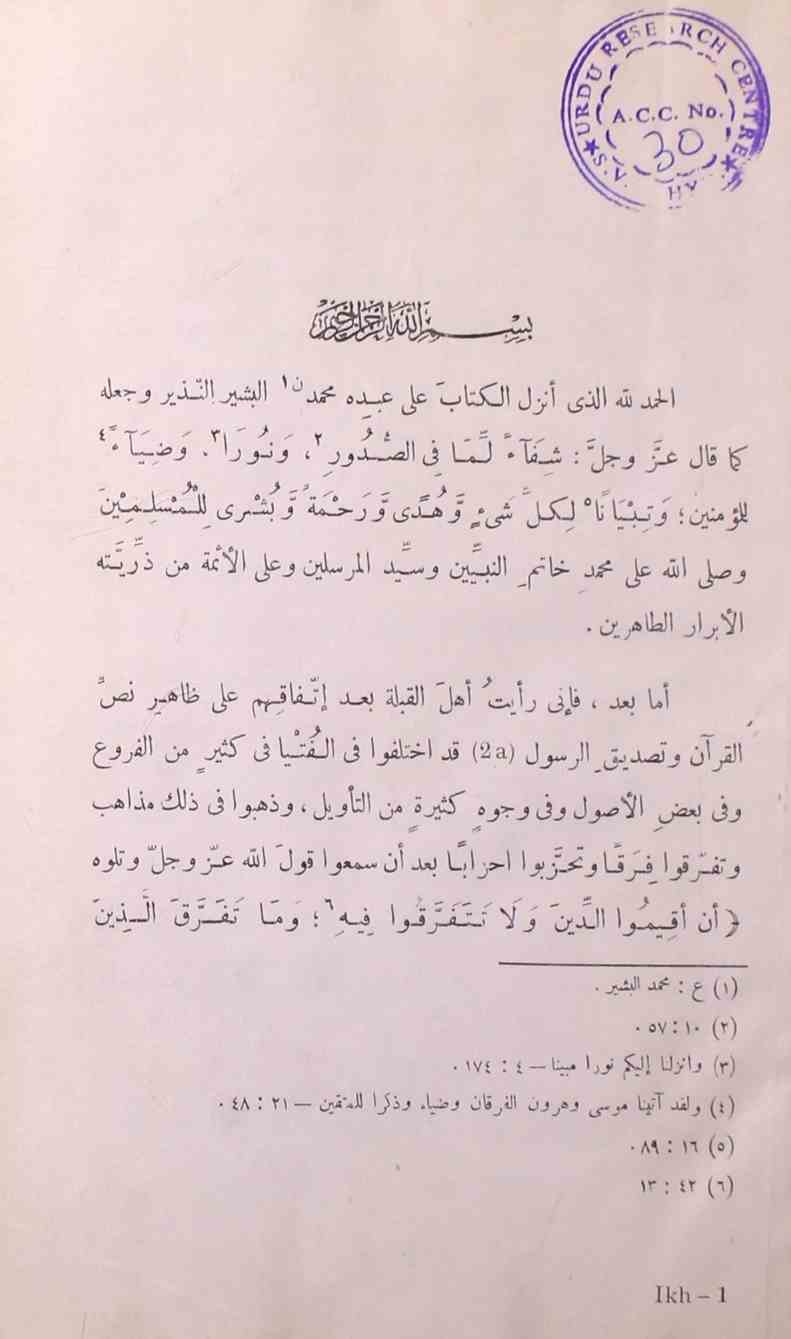 S.V. URDU RESEARCH CENTRE
A.C.C. No.
30
HY
بسم الله الرحمن الرحيم
الحمد لله الذى أنزل الكتابَ على عبده محمدٍ ن١ البشير النّذير وجعله
كما قال عزَّ وجلَّ : شِفَآءً لِّمَا فِى الصُّدُورِ٢، وَنُورًا٣. وَضِيَآءً٤
للمؤمنين؛ وَتِبْيَانًا٥ لِكلِّ شىءٍ وَّهُدًى وَّرَحْمَةً وَّبُشْرى لِلْمُسْلِمِيْنَ
وصلى الله على محمدٍ خاتمِ النبيِّين وسيِّد المرسلين وعلى الأئمة من ذرِّيَّته
الأبرار الطاهرين .
أما بعد ، فإنى رأيتُ أهلَ القبلة بعد إتّفاقهم على ظاهرِ نصِّ
القرآن وتصديقِ الرسول (2a) قد اختلفوا فى الفُتْيا فى كثيرٍ من الفروع
وفى بعضِ الأصول وفى وجوهٍ كثيرةٍ من التأويل، وذهبوا فى ذلك مذاهب
وتفرّقوا فِرَقًا وتحزَّبوا احزابًا بعد أن سمعوا قولَ الله عزّ وجلّ وتلوه
﴿ أن أقيمُوا الدِّينَ وَلَا تَتَفَرَّقُوا فِيهِ٦؛ وَمَا تَفَرَّقَ الَّذِينَ
(١) ع : محمد البشير .
(٢) ١٠ : ٥٧ .
(٣) وانزلنا إليكم نورا مبينا — ٤ : ١٧٤ .
(٤) ولقد آتينا موسى وهرون الفرقان وضياء وذكرا للمتقين — ٢١ : ٤٨ .
(٥) ١٦ : ٨٩ .
(٦) ٤٢ : ١٣
Ikh – 1